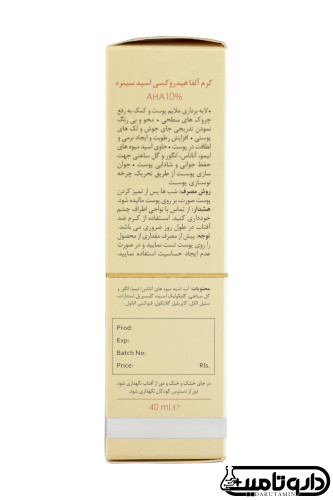 کرم آلفا هیدروکسی اسید سینره
AHA 10%
•لایه برداری ملایم پوست و کمک به رفع
چروک های سطحی • محو و بی رنگ
نمودن تدریجی جای جوش و لک های
پوستی • افزایش رطوبت و ایجاد نرمی و
لطافت در پوست • حاوی اسید میوه های
لیمو، آناناس، انگور و گل ساعتی جهت
حفظ جوانی و شادابی پوست • جوان
سازی پوست از طریق تحریک چرخه
نوسازی پوست
روش مصرف: شب ها پس از تمیز کردن
پوست صورت، بر روی پوست مالیده شود.
هشدار: از تماس با نواحی اطراف چشم
خودداری کنید. استفاده از کرم ضد
آفتاب در طول روز ضروری می باشد.
توجه: پیش از مصرف مقداری از محصول
را روی پوست تست نمایید و در صورت
عدم ایجاد حساسیت استفاده نمایید.
محتویات: آب، اسید میوه های آناناس/ لیمو/ انگور و
گل ساعتی، گلیکولیک اسید، گلیسیریل استئارات،
ستیل الکل، کاپریلیل گلایکول، فنوکسی اتانول
Prod:
Exp:
Batch No:
Price: Rls.
در جای خشک و خنک و دور از آفتاب نگهداری شود.
دور از دسترس کودکان نگهداری شود.
40 ml.℮
داروتامین
DARUTAMIN